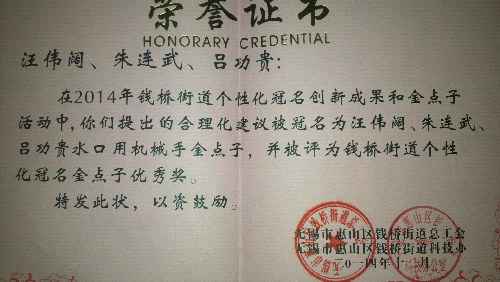 荣誉证书
HONORARY CREDENTIAL
汪伟阔、朱连武、吕功贵:
在2014年钱桥街道个性化冠名创新成果和金点子
活动中,你们提出的合理化建议被冠名为汪伟阔、朱连武、
吕功贵水口用机械手金点子,并被评为钱桥街道个性
化冠名金点子优秀奖。
特发此状,以资鼓励。
无锡市惠山区钱桥街道总工会
无锡市惠山区钱桥街道科技办
二〇一四年十一月